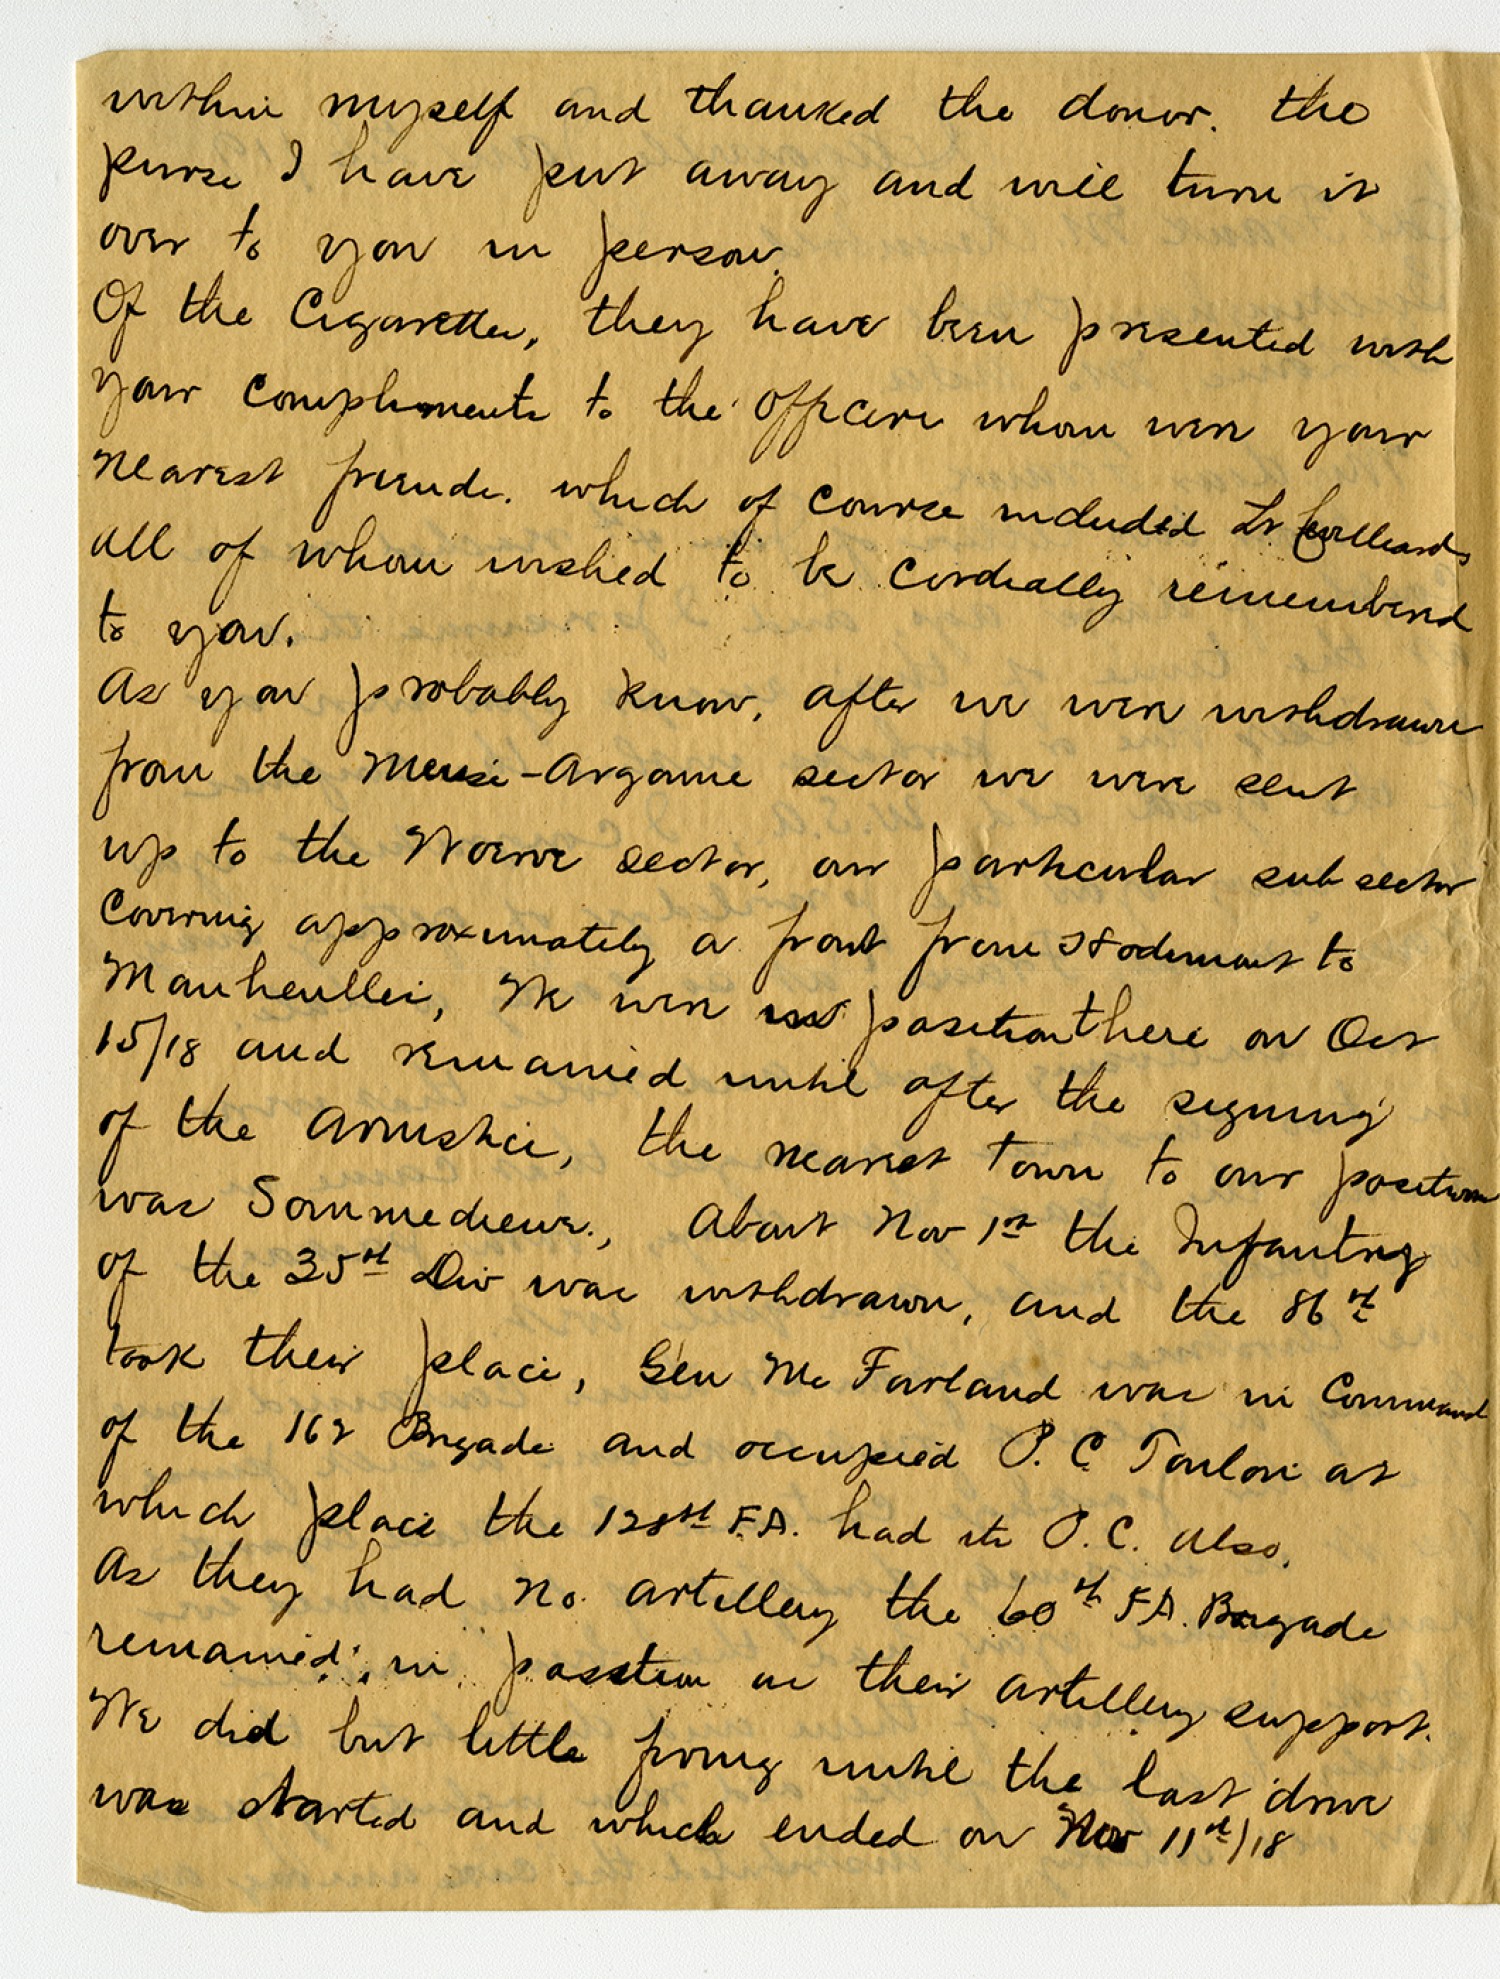 within myself and thanked the donor. the
purse I have put away and will turn it
over to you in person.
Of the Cigarettes, they have been presented with
your compliments to the officers whom were your
nearest friends. which of course included Lt
all of whom wished to be cordially remembered
to you.
As you probably know, after we were withdrawn
from the Meuse-Argonne sector we were sent
up to the Woevre sector, our particular sub sector
covering approximately a front from to
Manheulles, We were in position there on Oct
15/18 and remained until after the signing
of the Armistice, the nearest town to our position
was Sommedieue., About Nov 1st the Infantry
of the 35th Div was withdrawn, and the 86th
took their place, Gen McFarland was in Command
of the 162 Brigade and occupied P. C Toulon at
which place the 128th F.A. had its P.C. also.
As they had no artillery the 60th F.A. Brigade
remained in position as their artillery support.
We did but little firing until the last drive
was started and which ended on Nov 11th/18